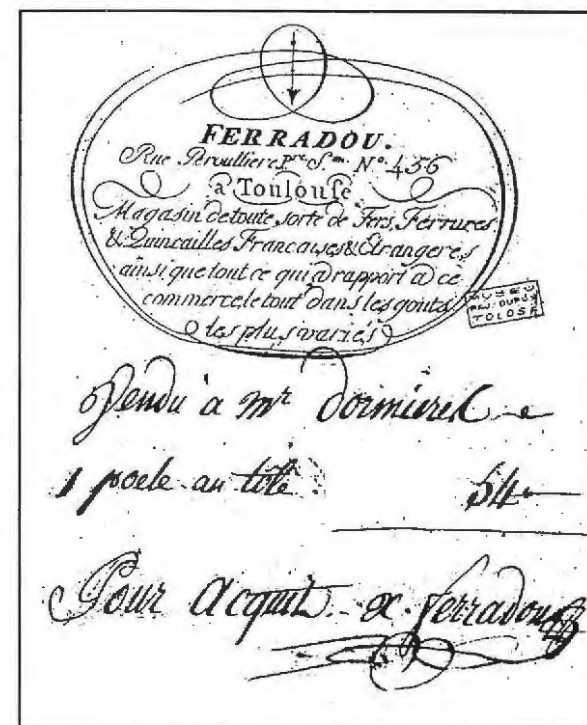 FERRADOU.
Rue Peroulliere Pre. Son. No. 456
a Toulouse
Magasin de toute sorte de Fers, Ferrures
& Quincailles Francaises & Etrangeres
ainsi que tout ce qui a rapport a ce
commerce le tout dans les gouts
les plus variés
MUSEU
PAU DUPUY
TOLOSA
Vendu a mr
1 poele au tôle 54
Pour acquit ferradou